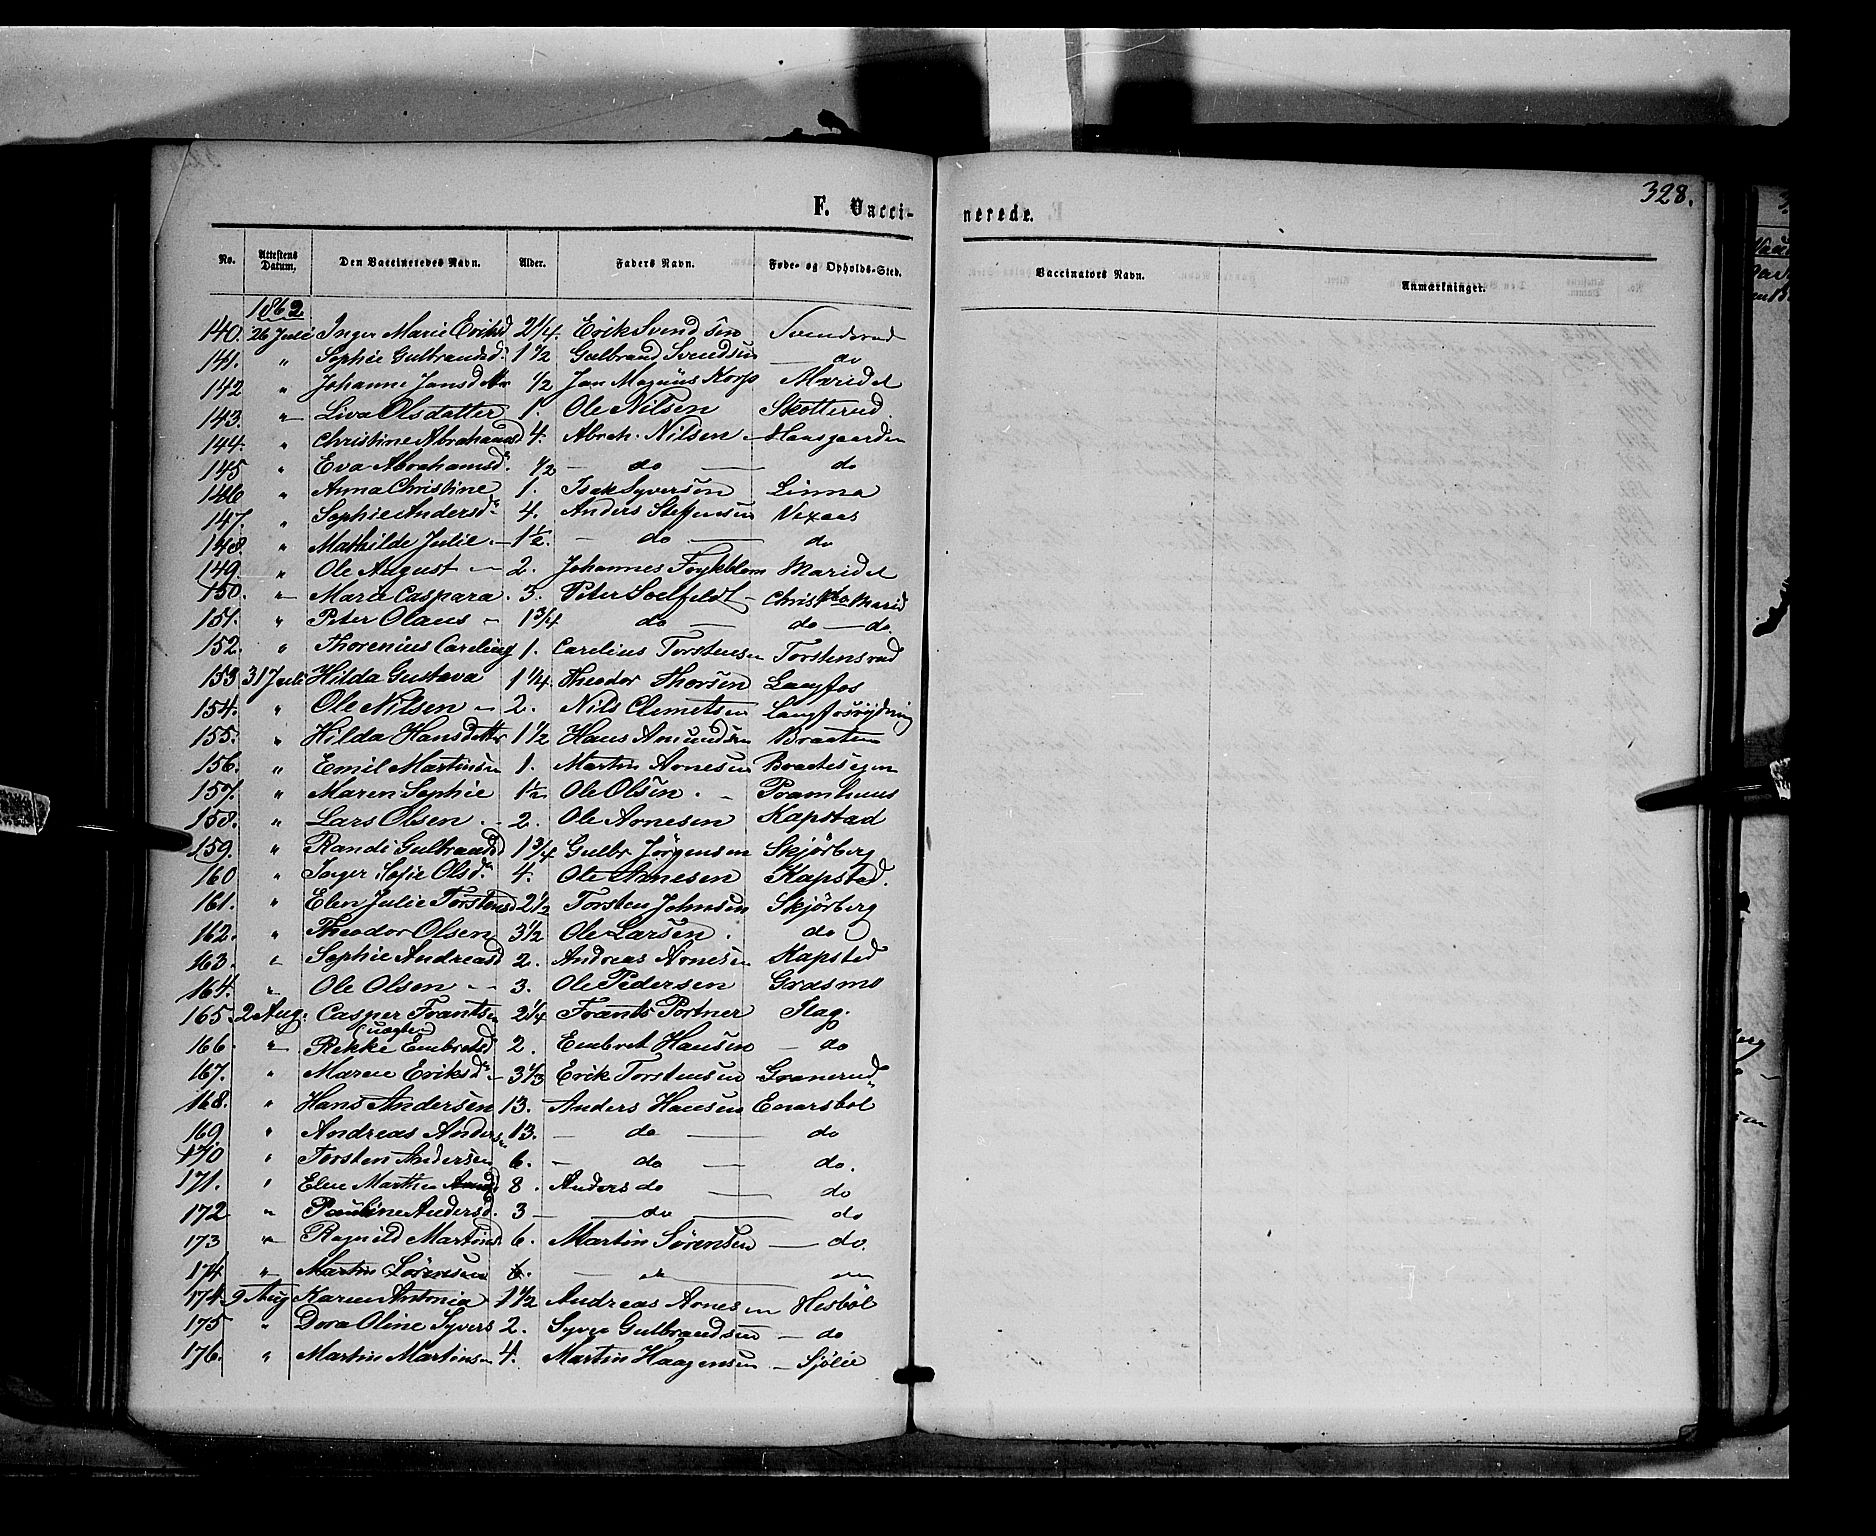 328.
F. Vacci-
nerede.
No. Attestens Datum. Den Vaccineredes Navn. Alder. Faders Navn. Føde- og Opholds-Sted. Vaccinators Navn. Anmærkninger.
1862
140. 26 Juli Inger Marie Eriksd 2 1/4. Erik Svendsen Svendsrud
141. " Sophie Gulbrandsd. 1 1/2 Gulbrand Svendsen — do
142 " Johanne Jansdtr 1/2 Jan Magnus Korp Maridel
143. " Liva Olsdatter 1. Ole Nilsen Skotterud.
144. " Christine Abrahamsd 4. Abrah. Nilsen - Hansgaarden
145 " Eva Abrahamsd. 1/2 — do — do
146 " Anna Christine 1. Isak Syversen Linna
147. " Sophie Andersd. 4. Anders Steffensen Vexaas
148. " Mathilde Julie. — 1 1/2. — do — do
149. " Ole August — 2. Johannes Frykblom Maridel
150. " Maren Caspara. 3. Peter Soelfeldt - Marid
151. " Peter Olaus - 1 3/4 do — do — do.
152. " Thorenius 1. Carelius Torstensen Torstensrud
153 31 Juli Hilda Gustava 1 1/4. Theodor Thorsen Langfos
154. " Ole Nilsen — 2. Nils Clemetsen Langfosrydning
155. " Hilda Hansdatter 1 1/2 Hans Amundsen Braaten
156. " Emil Martinsen 1. Martin Arnesen Braatesegen
157. " Maren Sophie 1 1/2 Ole Olsen. - Pramhuus
158. " Lars Olsen. - 2. Ole Arnesen Kapstad
159. " Randi Gulbrandsd 1 3/4 Gulbr Jørgensen Skjørberg
160 " Inger Sofie Olsd. 4. Ole Arnesen Kapstad.
161. " Elen Julie Torstensd 2 1/2 Torsten Johnsen Skjørberg
162. " Theodor Olsen 3 1/2 Ole Larsen. do
163. " Sophie Andreasd 2. Andreas Arnesen Kapsted
164. " Ole Olsen - - 3. Ole Pedersen Grasmo
165. 2 Aug. Casper Frantsen 2 1/4 Frants Portner Flag.
(uægte)
166. " Rikke Embretsd 2. Embret Hansen — do
167. " Maren Eriksd. - 3 1/3 Erik Torstensen Granerud
168. " Hans Andersen 13. Anders Hansen Enarsbøl
169. " Andreas Andersen 13. — do — do
170 " Torsten Andersen 6. — do — do.
171. " Elen Marthea 8. Anders do — do
172 " Pauline Andersd. 3 — do — do
173 " Ragnild Martinsd 6. Martin Sørensen — do.
174 " Martin Sørensen 6. — do — do
174. 9 Aug Karen Antonia - 1 1/2 Andreas Arnesen Hesbøl
175 " Dora Oline Syvers 2. Syver Gulbrandsen — do
176. " Martin Martinsen 4. Martin Haagensen - Sjølie